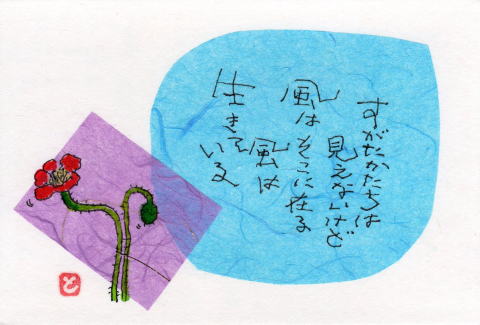 すがたかたちは
見えないけど
風はそこに在る
風は
生きている
と